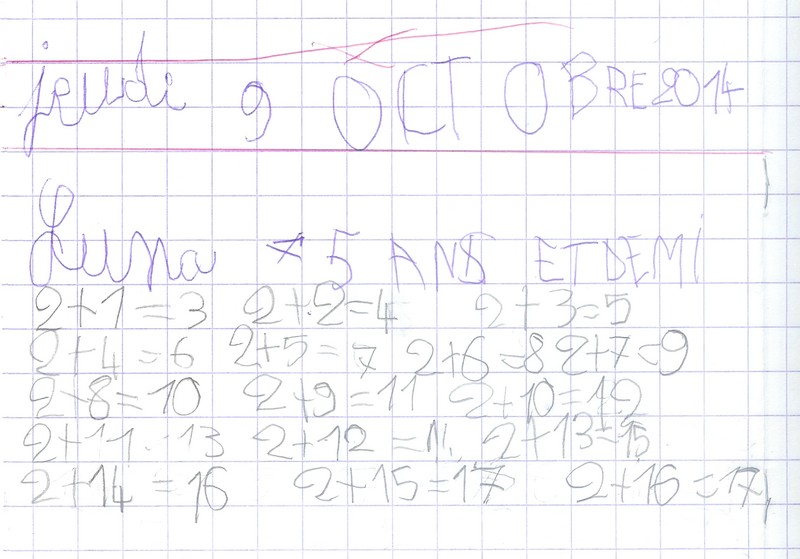 jeudi 9 OCTOBRE 2014
Luna 5 ANS ET DEMI
2+1=3 2+2=4 2+3=5
2+4=6 2+5=7 2+6=8 2+7=9
2+8=10 2+9=11 2+10=12
2+11 13 2+12 = 2+13=15
2+14=16 2+15=17 2+16=17